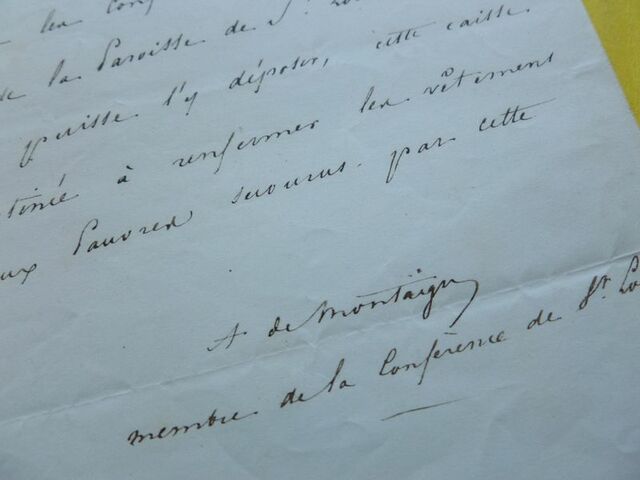 les Conf
de la Paroisse de St. Lou
puisse l'y déposer, cette caisse
tinée à renfermer les vêtement
ux Pauvres secourus par cette
A de Montaigu
membre de la Conférence de St. Lo